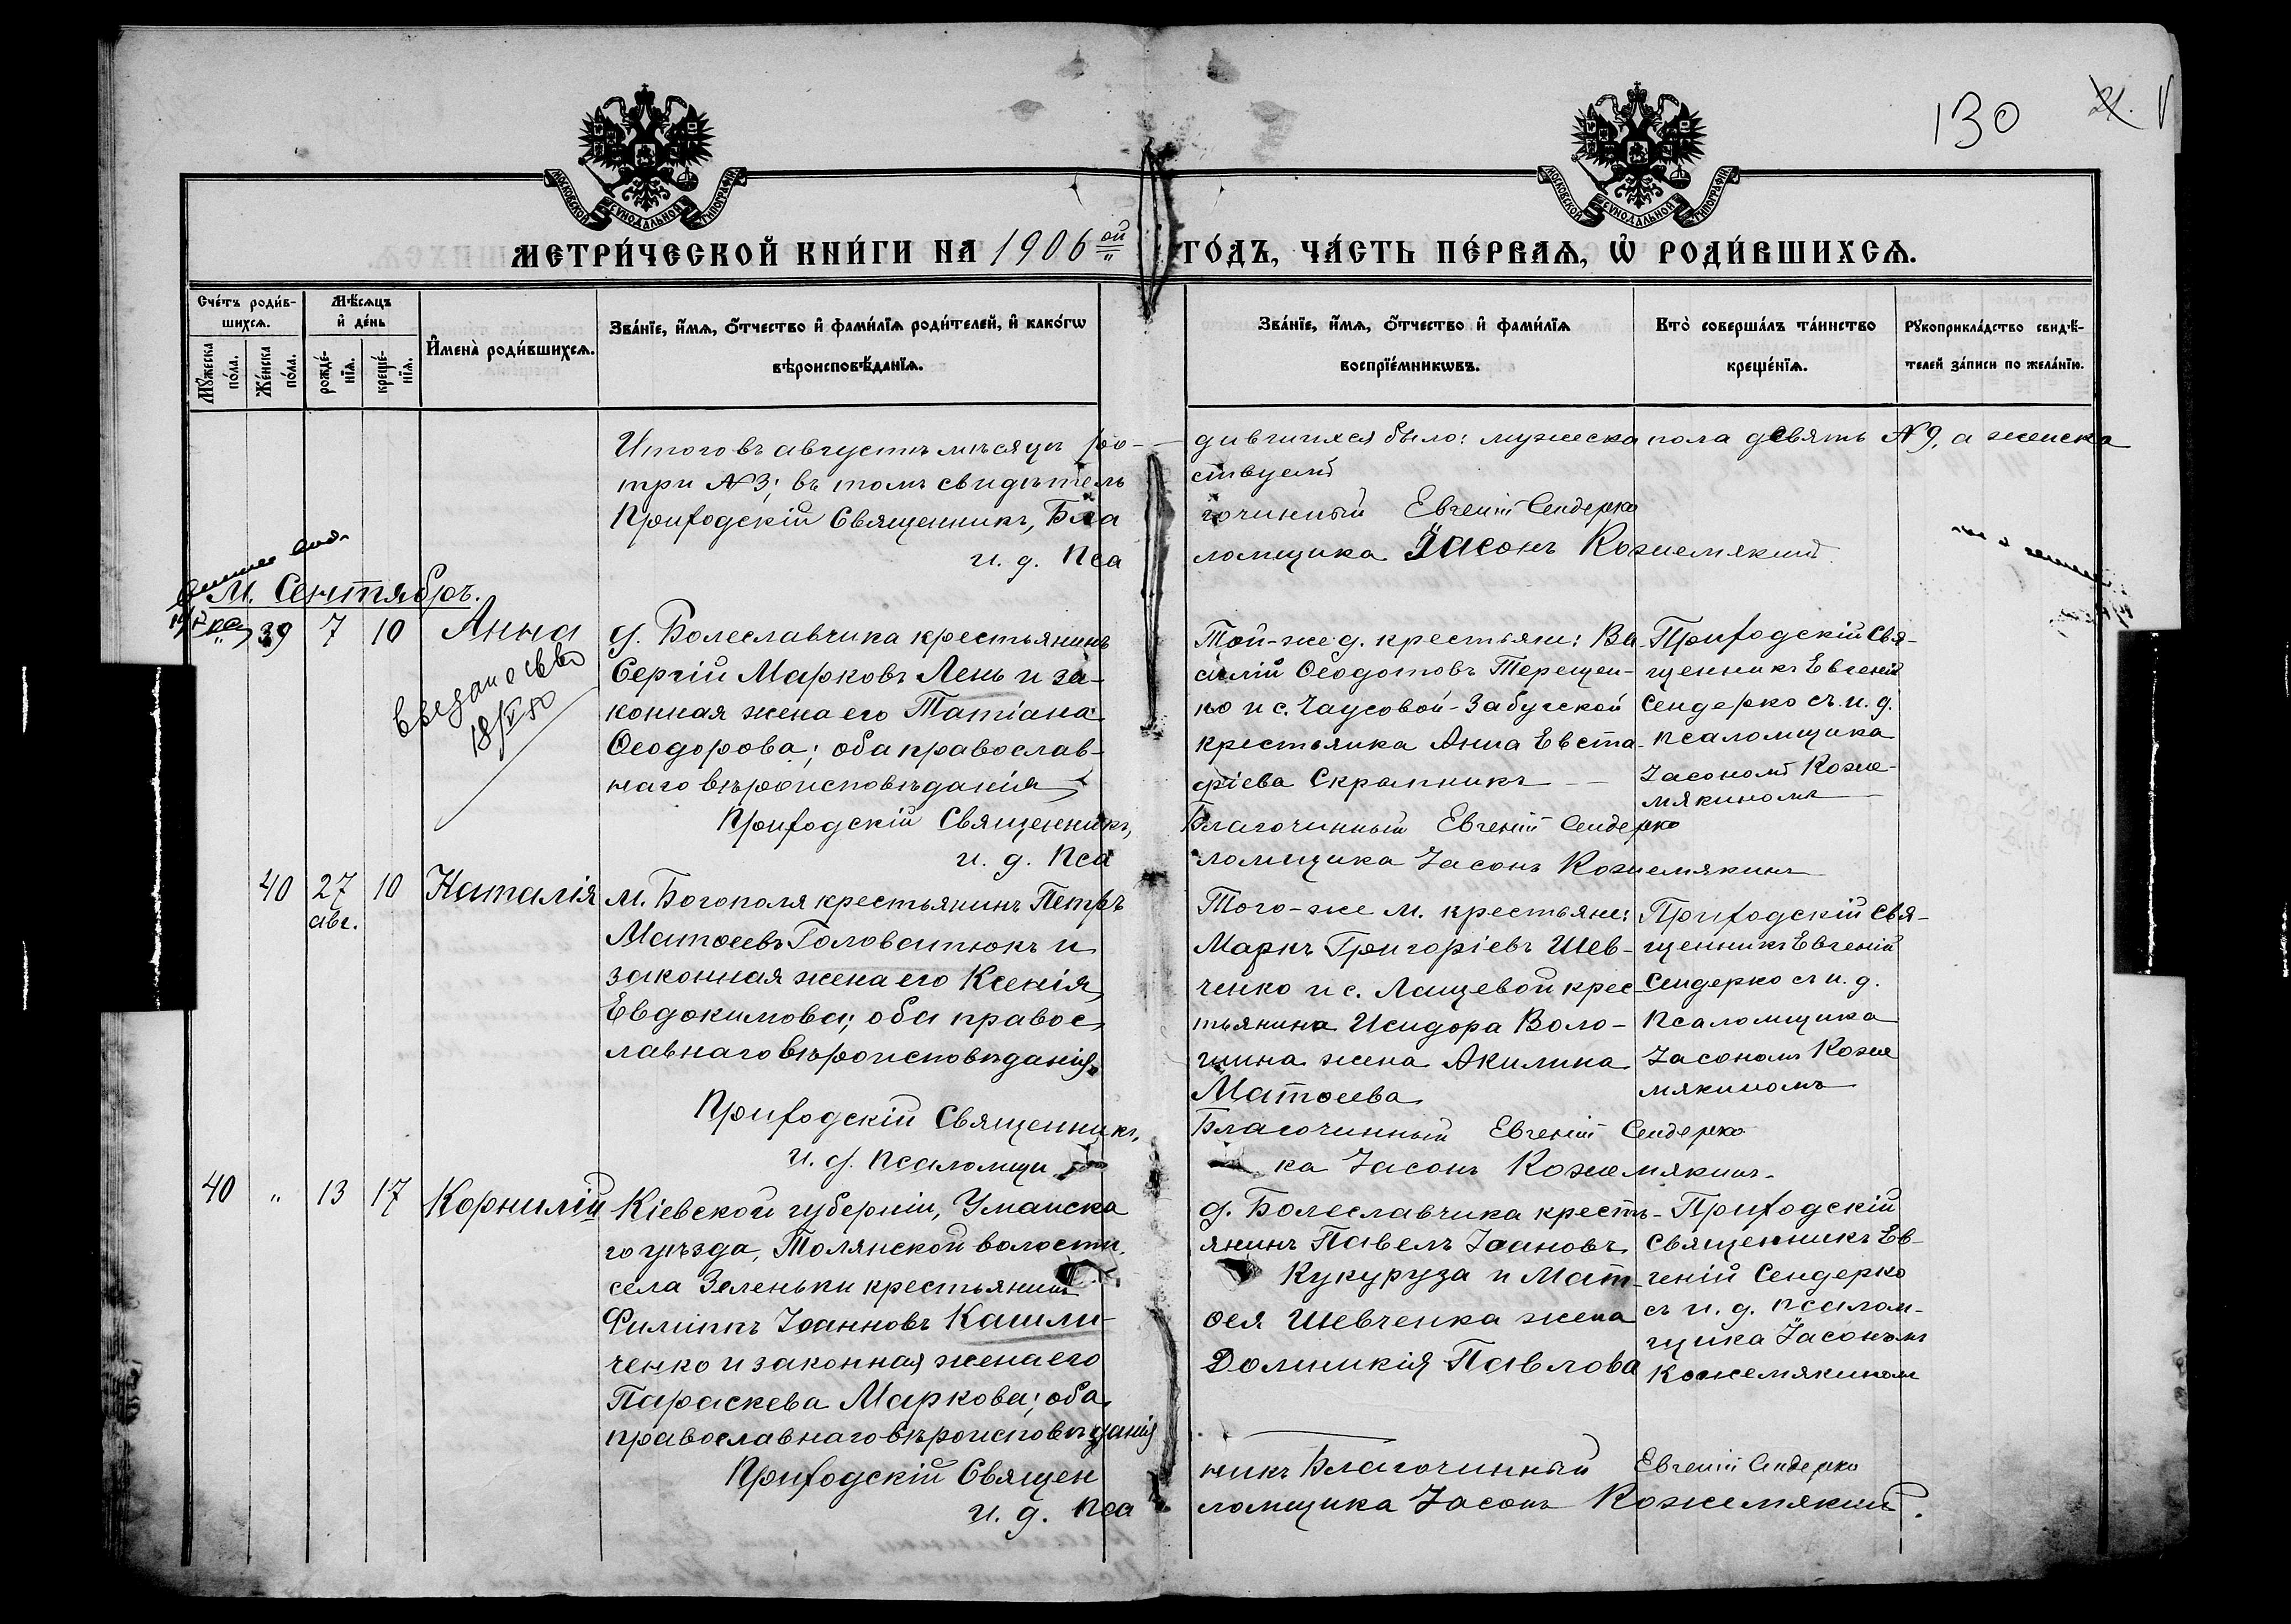 130
21.
МОСКОВСКОЙ СѴНОДАЛЬНОЙ ТИПОГРАФІИ
МОСКОВСКОЙ СѴНОДАЛЬНОЙ ТИПОГРАФІИ
МЕТРИ́ЧЕСКОЙ КНИ́ГИ НА 1906 ой
ГО́ДЪ, ЧА́СТЬ ПЕ́РВАѦ, Ѽ РОДИ́ВШИХСѦ.
Сче́тъ роди́в-
шихсѧ.
Мꙋ́жеска по́ла.
Же́нска по́ла.
Мѣ́сѧцъ
и҆ де́нь
рожде́-
нїѧ.
креще́-
нїѧ.
И҆мена̀ роди́вшихсѧ.
Зва́нїе, и҆́мѧ, ѻ҆́тчество и҆ фами́лїѧ роди́телей, и҆ како́гѡ
вѣроисповѣ́данїѧ.
Зва́нїе, и҆́мѧ, ѻ҆́тчество и҆ фами́лїѧ
воспрїе́мникѡвъ.
Кто̀ соверша́лъ та́инство
креще́нїѧ.
Рꙋкоприкла́дство свидѣ́-
телей за́писи по жела́нїю.
Итого въ августѣ мѣсяцѣ ро-
три № 3; въ томъ свидѣтель
Приходскій Священникъ, Бла
и. д. Пса
дившихся было: мужеска пола девять № 9, а женска
ствуемъ
гочинный Евгеній Сендерко
ломщика Іасонъ Кожемякинъ
М. Сентябрь.
" 39 7 10 Анна
18/IV 50
д. Болеславчика крестьянинъ
Сергій Марковъ Лень и за-
конная жена его Татіана
Ѳеодорова; оба православ-
наго вѣроисповѣданія
Приходскій Священникъ,
и. д. Пса
Той-же д. крестьяне: Ва
силій Ѳеодотовъ Терещен-
ко и с. Чаусовой-Забугской
крестьянка Анна Евста-
фіева Скрыпникъ
Благочинный Евгеній Сендерко
ломщика Іасонъ Кожемякинъ
Приходскій Свя-
щенникъ Евгеній
Сендерко съ и. д.
псаломщика
Іасономъ Коже-
мякиномъ
40 27 авг. 10 Наталія
м. Богополя крестьянинъ Петръ
Матѳеевъ Головатюкъ и
законная жена его Ксенія
Евдокимова; оба правос
лавнаго вѣроисповѣданія
Приходскій Священникъ,
и. д. Псаломщи
Того-же м. крестьяне:
Маркъ Григоріевъ Шев-
ченко и с. Лащевой крес-
тьянина Исидора Воло-
шина жена Акилина
Матѳеева
Благочинный Евгеній Сендерко
ка Іасонъ Кожемякинъ.
Приходскій Свя-
щенникъ Евгеній
Сендерко съ и. д.
Псаломщика
Іасономъ Коже
мякиномъ
40 " 13 17 Корнилій
Кіевской губерніи, Уманска
го уѣзда, Толянской волости
села Зеленьки крестьянинъ
Филиппъ Іоанновъ Кашли-
ченко и законная жена его
Параскева Маркова; оба
православнаго вѣроисповѣданія
Приходскій Священ
и. д. Пса
д. Болеславчика кресть-
янинъ Павелъ Іоановъ
Кукуруза и Мат-
ѳея Шевченка жена
Домникія Павлова
никъ Благочинный Евгеній Сендерко
ломщика Іасонъ Кожемякинъ.
Приходскій
Священникъ Ев-
геній Сендерко
съ и. д. псалом-
щика Іасономъ
Кожемякиномъ